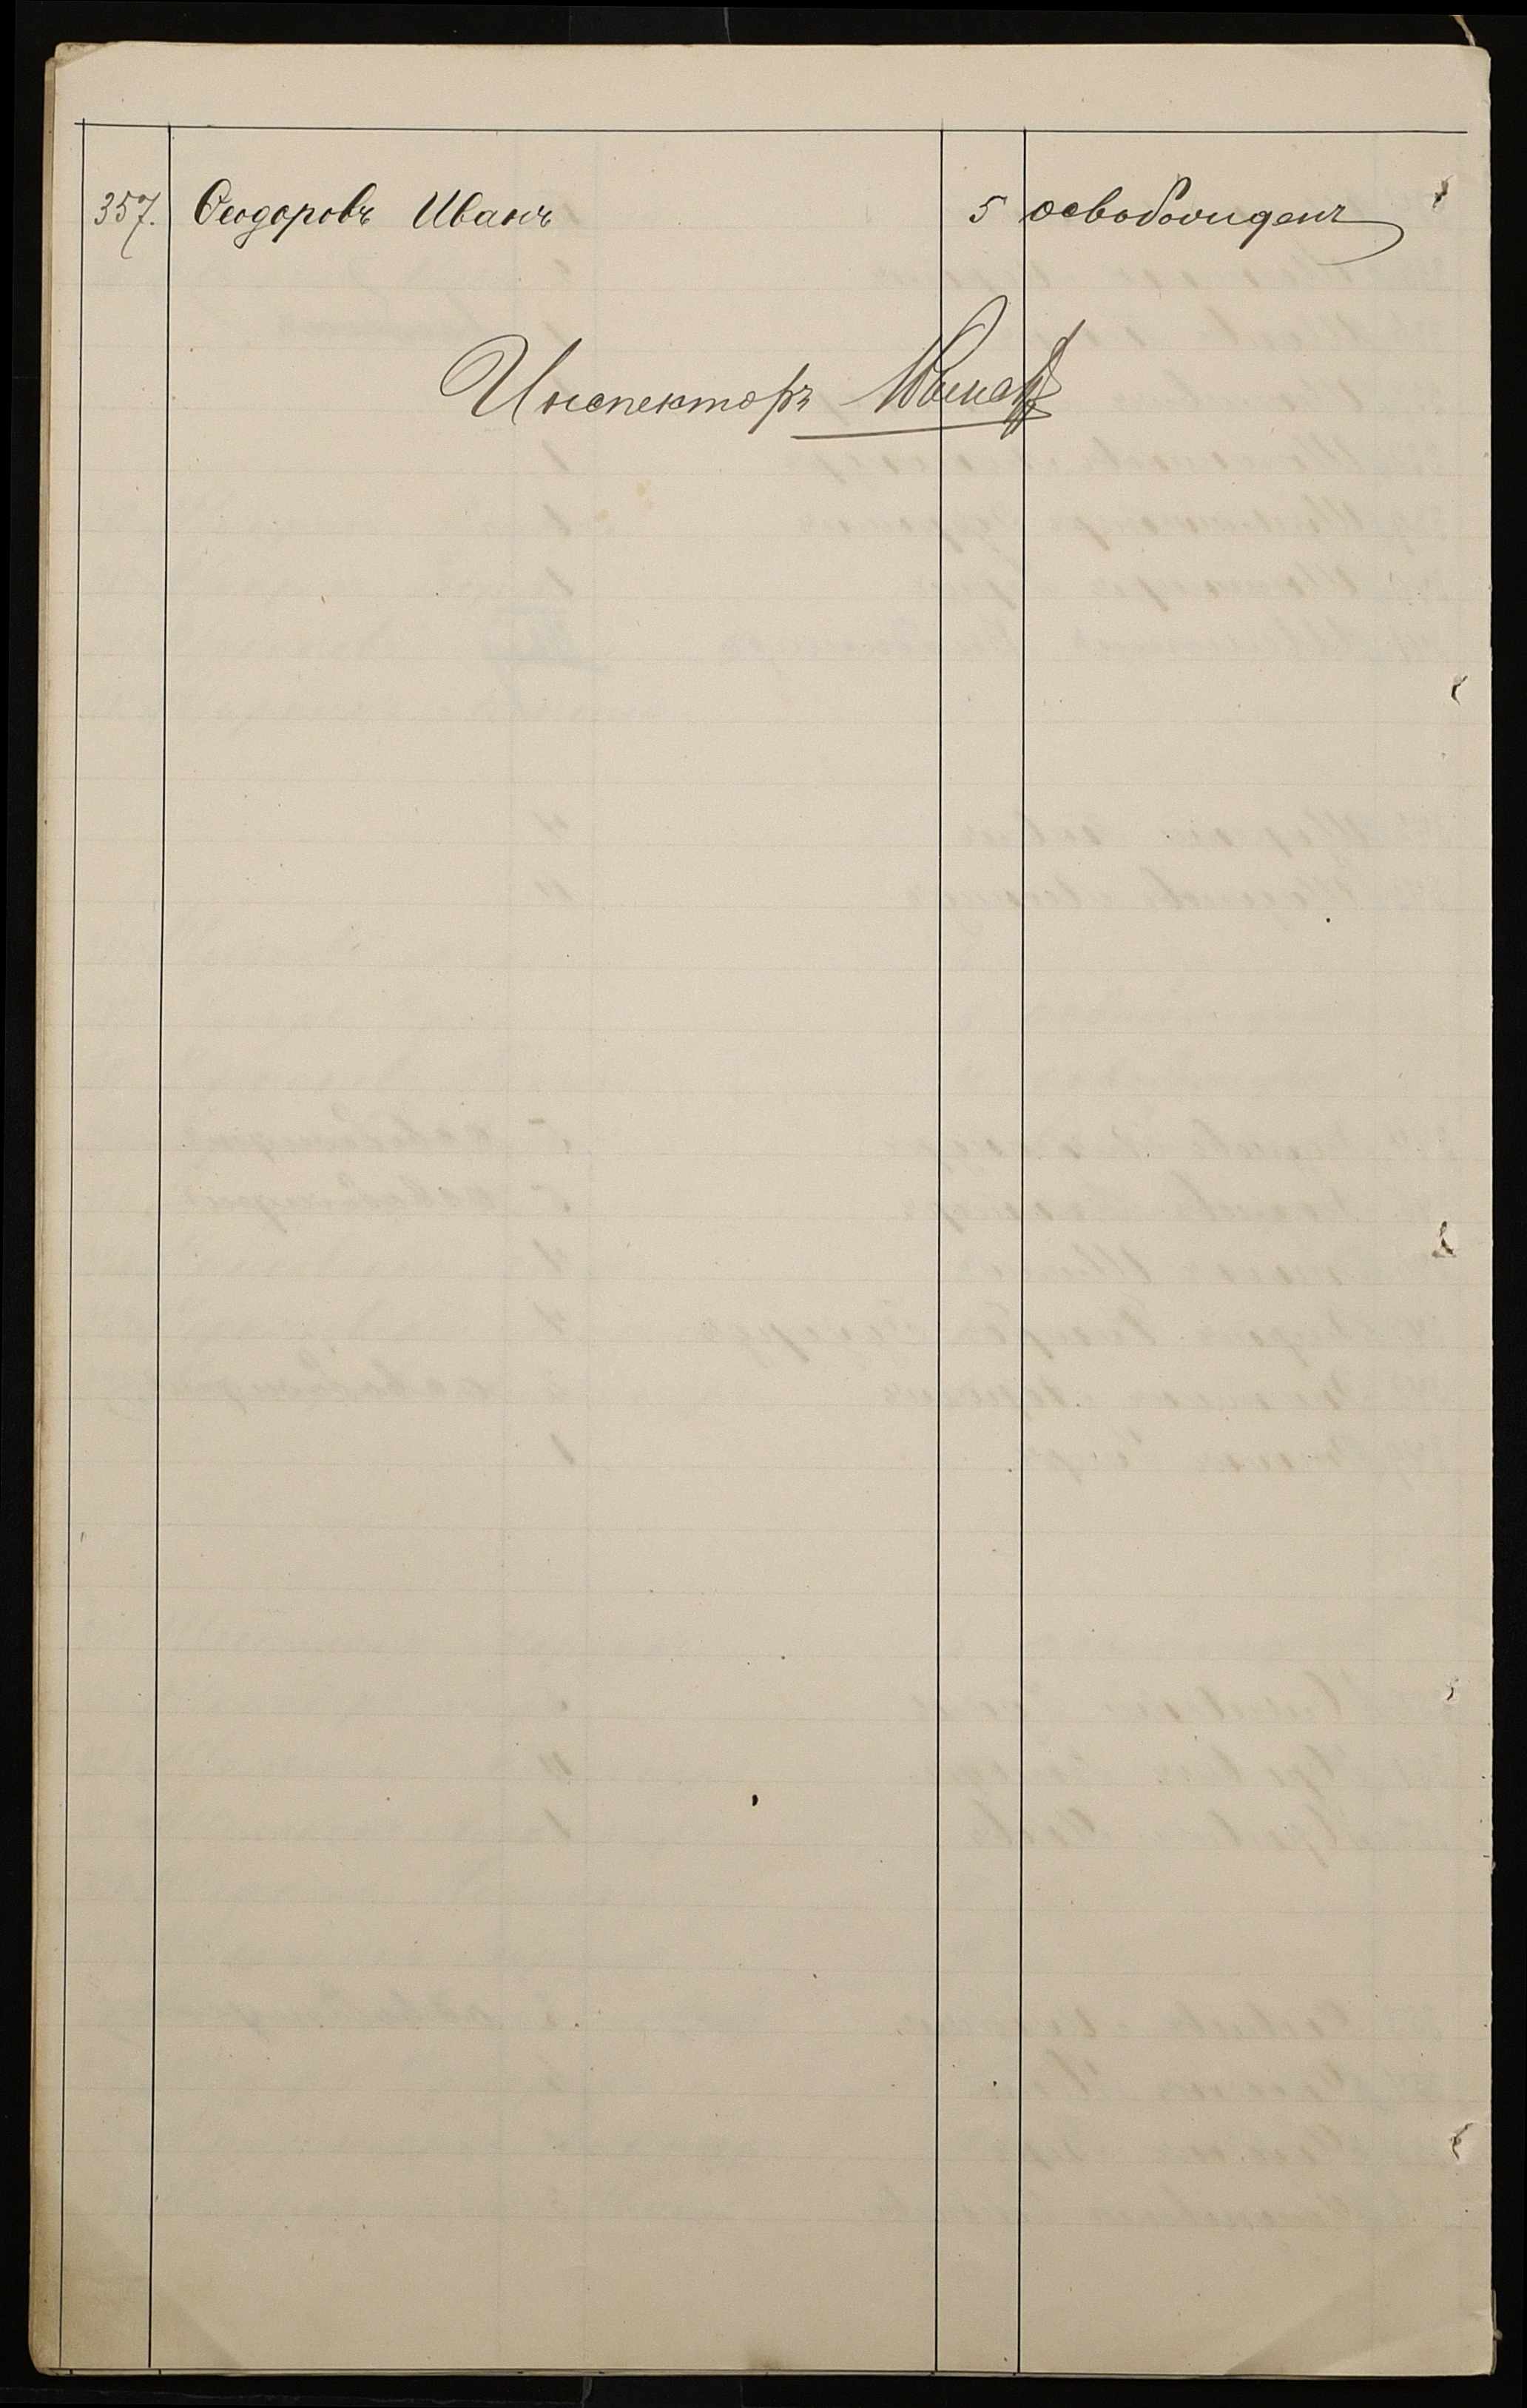 357. Ѳеодоровъ Иванъ 5 освобожденъ
Инспекторъ